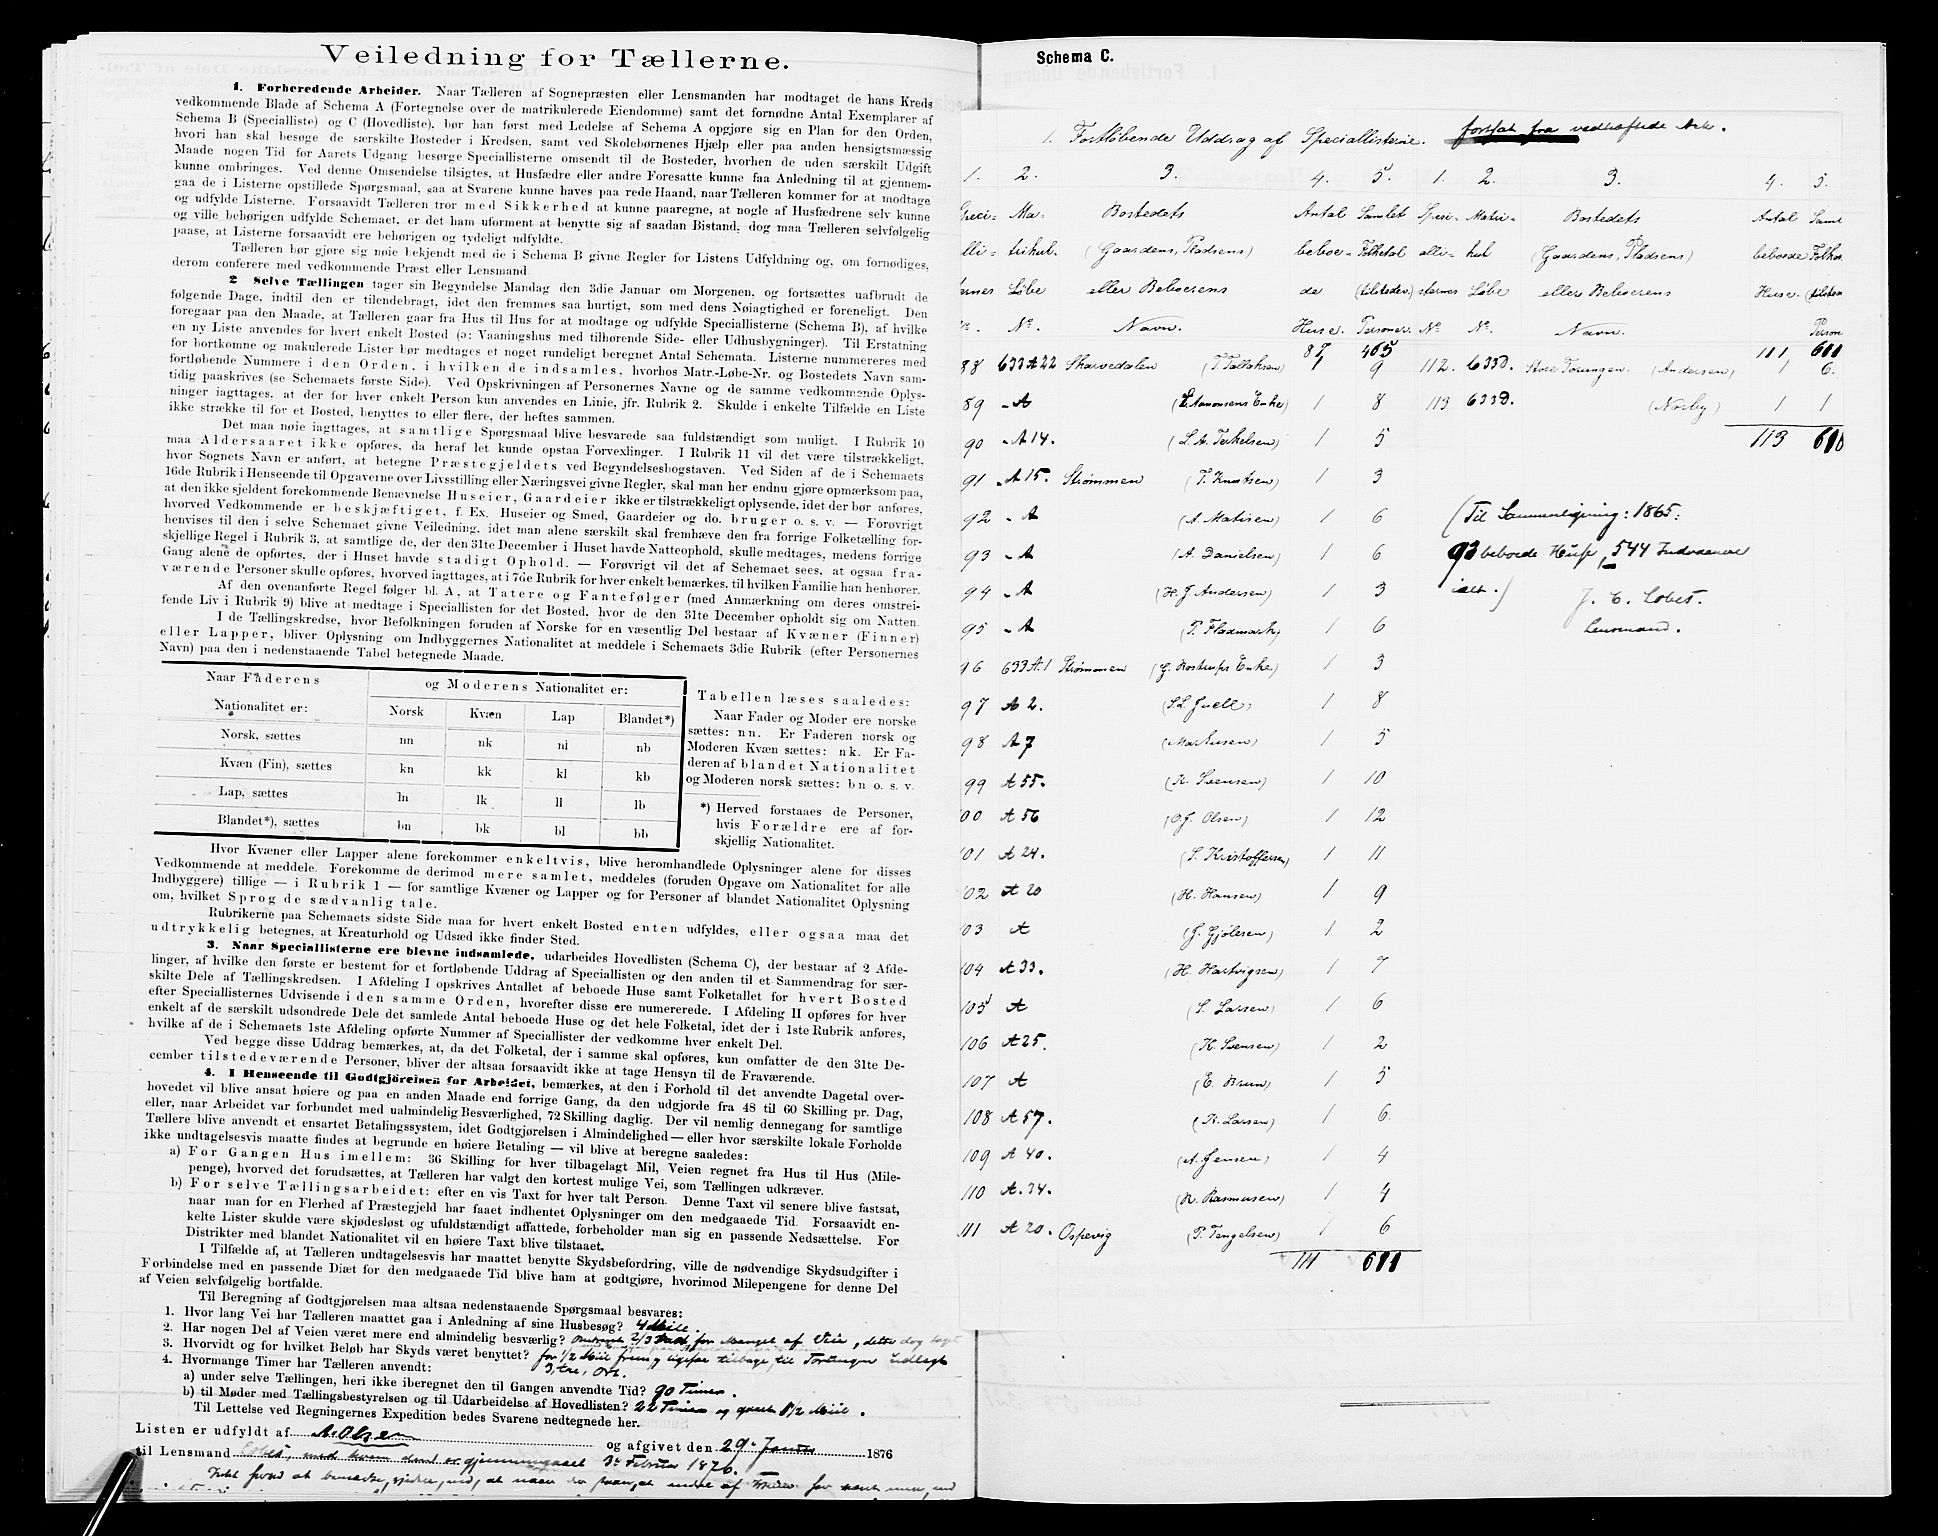 Veiledning for Tællerne.
1. Forberedende Arbeider. Naar Tælleren af Sognepræsten eller Lensmanden har modtaget de hans Kreds
vedkommende Blade af Schema A (Fortegnelse over de matrikulerede Eiendomme) samt det fornødne Antal Exemplarer af
Schema B (Specialliste) og C (Hovedliste), bør han først med Ledelse af Schema A opgjøre sig en Plan for den Orden,
hvori han skal besøge de særskilte Bosteder i Kredsen, samt ved Skolebørnenes Hjælp eller paa anden hensigtsmæssig
Maade nogen Tid før Aarets Udgang besørge Speciallisterne omsendt til de Bosteder, hvorhen de uden særskilt Udgift
kunne ombringes. Ved denne Omsendelse tilsigtes, at Husfædre eller andre Foresatte kunne faa Anledning til at gjennem-
gaa de i Listerne opstillede Spørgsmaal, saa at Svarene kunne haves paa rede Haand, naar Tælleren kommer for at modtage
og udfylde Listerne. Forsaavidt Tælleren tror med Sikkerhed at kunne paaregne, at nogle af Husfædrene selv kunne
og ville behørigen udfylde Schemaet, er det ham uforment at benytte sig af saadan Bistand; dog maa Tælleren selvfølgelig
paase, at Listerne forsaavidt ere behørigen og tydeligt udfyldte.
Tælleren bør gjøre sig nøie bekjendt med de i Schema B givne Regler for Listens Udfyldning og, om fornødiges,
derom conferere med vedkommende Præst eller Lensmand.
2 Selve Tællingen tager sin Begyndelse Mandag den 3die Januar om Morgenen, og fortsættes uafbrudt de
følgende Dage, indtil den er tilendebragt, idet den fremmes saa hurtigt, som med dens Nøiagtighed er foreneligt. Den
foregaar paa den Maade, at Tælleren gaar fra Hus til Hus for at modtage og udfylde Speciallisterne (Schema B), af hvilke
en ny Liste anvendes for hvert enkelt Bosted (ɔ: Vaaningshus med tilhørende Side- eller Udhusbygninger). Til Erstatning
for bortkomne og makulerede Lister bør medtages et noget rundeligt beregnet Antal Schemata. Listerne nummereres med
fortløbende Nummere i den Orden, i hvilken de indsamles, hvorhos Matr.-Løbe-Nr. og Bostedets Navn sam-
tidig paaskrives (se Schemaets første Side). Ved Opskrivningen af Personernes Navne og de samme vedkommende Oplys-
ninger iagttages, at der for hver enkelt Person kun anvendes en Linie, jfr. Rubrik 2. Skulde i enkelte Tilfælde en Liste
ikke strække til for et Bosted, benyttes to eller flere, der heftes sammen.
Det maa nøie iagttages, at samtlige Spørgsmaal blive besvarede saa fuldstændigt som muligt. I Rubrik 10
maa Aldersaaret ikke opføres, da heraf let kunde opstaa Forvexlinger. I Rubrik 11 vil det være tilstrækkeligt,
hvor Sognets Navn er anført, at betegne Præstegjeldets ved Begyndelsesbogstaven. Ved Siden af de i Schemaets
16de Rubrik i Henseende til Opgaverne over Livsstilling eller Næringsvei givne Regler, skal man her endnu gjøre opmærksom paa,
at den ikke sjeldent forekommende Benævnelse Huseier, Gaardeier ikke er tilstrækkeligt oplysende, idet der bør anføres,
hvorved Vedkommende er beskjæftiget, f. Ex. Huseier og Smed, Gaardeier og do. bruger o. s. v. — Forøvrigt
henvises til den i selve Schemaet givne Veiledning, idet man alene særskilt skal fremhæve den fra forrige Folketælling for-
skjellige Regel i Rubrik 3, at samtlige de, der den 31te December i Huset havde Natteophold, skulle medtages, medens forrige
Gang alene de opførtes, der i Huset havde stadigt Ophold. — Forøvrigt vil det af Schemaet sees, at ogsaa fra-
værende Personer skulle opføres, hvorved iagttages, at i 7de Rubrik for hver enkelt bemærkes, til hvilken Familie han henhører.
Af den ovenanførte Regel følger bl. A, at Tatere og Fantefølger (med Anmærkning om deres omstrei-
fende Liv i Rubrik 9) blive at medtage i Speciallisten for det Bosted, hvor de den 31te December opholdt sig om Natten.
I de Tællingskredse, hvor Befolkningen foruden af Norske for en væsentlig Del bestaar af Kvæner (Finner)
eller Lapper, bliver Oplysning om Indbyggernes Nationalitet at meddele i Schemaets 3die Rubrik (efter Personernes
Navn) paa den i nedenstaaende Tabel betegnede Maade.
Naar Faderens Nationalitet er: og Moderens Nationalitet er:
Norsk Kvæn Lap Blandet*)
Norsk, sættes nn nk nl nb
Kvæn (Fin), sættes kn kk kl kb
Lap, sættes ln lk ll lb
Blandet*), sættes bn bk bl bb
Tabellen læses saaledes:
Naar Fader og Moder ere norske
sættes: nn. Er Faderen norsk og
Moderen Kvæn sættes: nk. Er Fa-
deren af blandet Nationalitet
og Moderen norsk sættes: bn o. s. v.
*) Herved forstaaes de Personer,
hvis Forældre ere af for-
skjellig Nationalitet.
Hvor Kvæner eller Lapper alene forekommer enkeltvis, blive heromhandlede Oplysninger alene for disses
Vedkommende at meddele. Forekomme de derimod mere samlet, meddeles (foruden Opgave om Nationalitet for alle
Indbyggere) tillige — i Rubrik 1 — for samtlige Kvæner og Lapper og for Personer af blandet Nationalitet Oplysning
om, hvilket Sprog de sædvanlig tale.
Rubrikerne paa Schemaets sidste Side maa for hvert enkelt Bosted enten udfyldes, eller ogsaa maa det
udtrykkelig betegnes, at Kreaturhold og Udsæd ikke finder Sted.
3. Naar Speciallisterne ere blevne indsamlede, udarbeides Hovedlisten (Schema C), der bestaar af 2 Afde-
linger, af hvilke den første er bestemt for et fortløbende Uddrag af Speciallisten og den anden til et Sammendrag for sær-
skilte Dele af Tællingskredsen. I Afdeling I opskrives Antallet af beboede Huse samt Folketallet for hvert Bosted
efter Speciallisternes Udvisende i den samme Orden, hvorefter disse ere numererede. I Afdeling II opføres for hver
enkelt af de særskilt udsondrede Dele det samlede Antal beboede Huse og det hele Folketal, idet der i 1ste Rubrik anføres,
hvilke af de i Schemaets 1ste Afdeling opførte Nummer af Specialister der vedkomme hver enkelt Del.
Ved begge disse Uddrag bemærkes, at, da det Folketal, der i samme skal opføres, kun omfatter de den 31te De-
cember tilstedeværende Personer, bliver der altsaa forsaavidt ikke at tage Hensyn til de Fraværende.
4. I Henseende til Godtgjörelsen for Arbeidet, bemærkes, at den i Forhold til det anvendte Dagetal over-
hovedet vil blive ansat høiere og paa en anden Maade end forrige Gang, da den udgjorde fra 48 til 60 Skilling pr. Dag,
eller, naar Arbeidet var forbundet med ualmindelig Besværlighed, 72 Skilling daglig. Der vil nemlig dennegang for samtlige
Tællere blive anvendt et ensartet Betalingssystem, idet Godtgjørelsen i Almindelighed — eller hvor særskilte lokale Forholde
ikke undtagelsesvis maatte findes at begrunde en høiere Betaling — vil blive at beregne saaledes:
a) For Gangen Hus imellem: 36 Skilling for hver tilbagelagt Mil, Veien regnet fra Hus til Hus (Mile-
penge), hvorved det forudsættes, at Tælleren har valgt den kortest mulige Vei, som Tællingen udkræver.
b) For selve Tællingsarbeidet: efter en vis Taxt for hver talt Person. Denne Taxt vil senere blive fastsat,
naar man for en Flerhed af Præstegjeld har faaet indhentet Oplysninger om den medgaaede Tid. Forsaavidt en-
kelte Lister skulde være skjødesløst og ufuldstændigt affattede, forbeholder man sig en passende Nedsættelse. For
Distrikter med blandet Nationalitet vil en høiere Taxt blive tilstaaet.
I Tilfælde af, at Tælleren undtagelsesvis har maattet benytte Skydsbefordring, ville de nødvendige Skydsudgifter i
Forbindelse med en passende Diæt for den medgaaede Tid blive ham at godtgjøre, hvorimod Milepengene for denne Del
af Veien selvfølgelig bortfalde.
Til Beregning af Godtgjørelsen maa altsaa nedenstaaende Spørgsmaal besvares:
1. Hvor lang Vei har Tælleren maattet gaa i Anledning af sine Husbesøg? 4 Mile.
2. Har nogen Del af Veien været mere end almindelig besværlig? 2/3 for Mangel af Veie, dette dog
3. Hvorvidt og for hvilket Beløb har Skyds været benyttet? for 1/2 Miil frem og tilbage, til Torungen
3, tre, Ort.
4. Hvormange Timer har Tælleren anvendt:
a) under selve Tællingen, heri ikke iberegnet den til Gangen anvendte Tid? 90 Timer.
b) til Møder med Tællingsbestyrelsen og til Udarbeidelse af Hovedlisten? 22 Timer og 1/2 Miil.
Til Lettelse ved Regningernes Expedition bedes Svarene nedtegnede her.
Listen er udfyldt af A. Olsen og afgivet den 29. Januar 1876
til Lensmand med hvem den er gjennemgaaet 3. Februar 1876.
Schema C.
1. Fortløbende Uddrag af Speciallisterne. fortsat fra vedhæftede Ark.
1. 2. 3. 4. 5. 1. 2. 3. 4. 5.
Speci- Ma- Bostedets Antal Samlet Speci- Matri- Bostedets Antal Saml
alli- trikul. (Gaardens, Pladsens) beboe- Folketal alli- kul (Gaardens, Pladsens) beboede Folket
sternes Løbe eller Beboerens de (tilstedev. sternes Løbe eller Beboerens Huse. (tilsted
No. Navn. Huse. Personer. No. No. Navn. Person
87 465 111 611
88 633 A 22 Skarvedalen (T. Tallaksen) 1 9 112. 633D. Store Torungen. (Andersen) 1 6.
89 - A (Aanonsens Enke) 1 8 113 633D. (Norby) 1 1
90 - A 14. (L. A. Terkelsen) 1 5 113 618
91 - A 15. Strømmen (T. Knutsen) 1 3
92 - A (A. Matisen) 1 6 (Til Sammenligning: 1865:
93 - A (A. Danielsen) 1 6 93 beboede Huse, 544 Individer
94 - A (H. J. Andersen) 1 3 ialt.) J. C. Lobes.
95 - A (P. Fladmark) 1 6 Lensmand.
96 633 A. 1 Strømmen (G. Rostrups Enke) 1 3
97 A 2. (S. L. Juell) 1 8
98 A 7 (Markusen) 1 5
99 A 55. (K. Svensen) 1 10
100 A 56 (O. J. Olsen) 1 12
101 A 24. (S. Kristoffersen) 1 11
102 A 20 (H. Hansen) 1 9
103 A (J. Gjølesen) 1 2
104 A 33. (H. Hartvigsen) 1 7
105 A (S. Larsen) 1 6
106 A 25. (H. Svensen) 1 2
107 A (E. Brun) 1 5
108 A 57. (K. Larsen) 1 6
109 A 40. (A. Jensen) 1 4
110 A. 34. (N. Rasmusen) 1 4
111 A 20. Ospevig (P. Tengelsen) 1 6
111 611